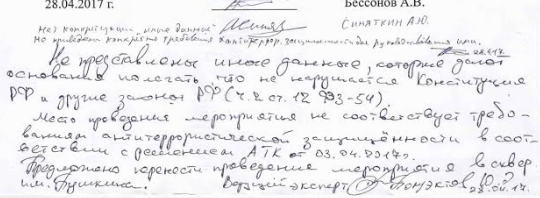 28.04.2017 г. Бессонов А.В.
Нет конкретизации, иные данные Синяткин А.Ю.
Не приведены конкретные требования антитеррор. защищенности для руководствования ими.
28.4.17.
Не представлены иные данные, которые дают
основания полагать что не нарушается Конституция
РФ и другие законы РФ (ч.2 ст.12 ФЗ-54).
Место проведения мероприятия не соответствует требо-
ваниям антитеррористической защищённости в соот-
ветствии с решением АТК от 03.04.2017г.
Предложено перенести проведение мероприятия в сквер
им. Пушкина. Ведущий эксперт 28.04.17.